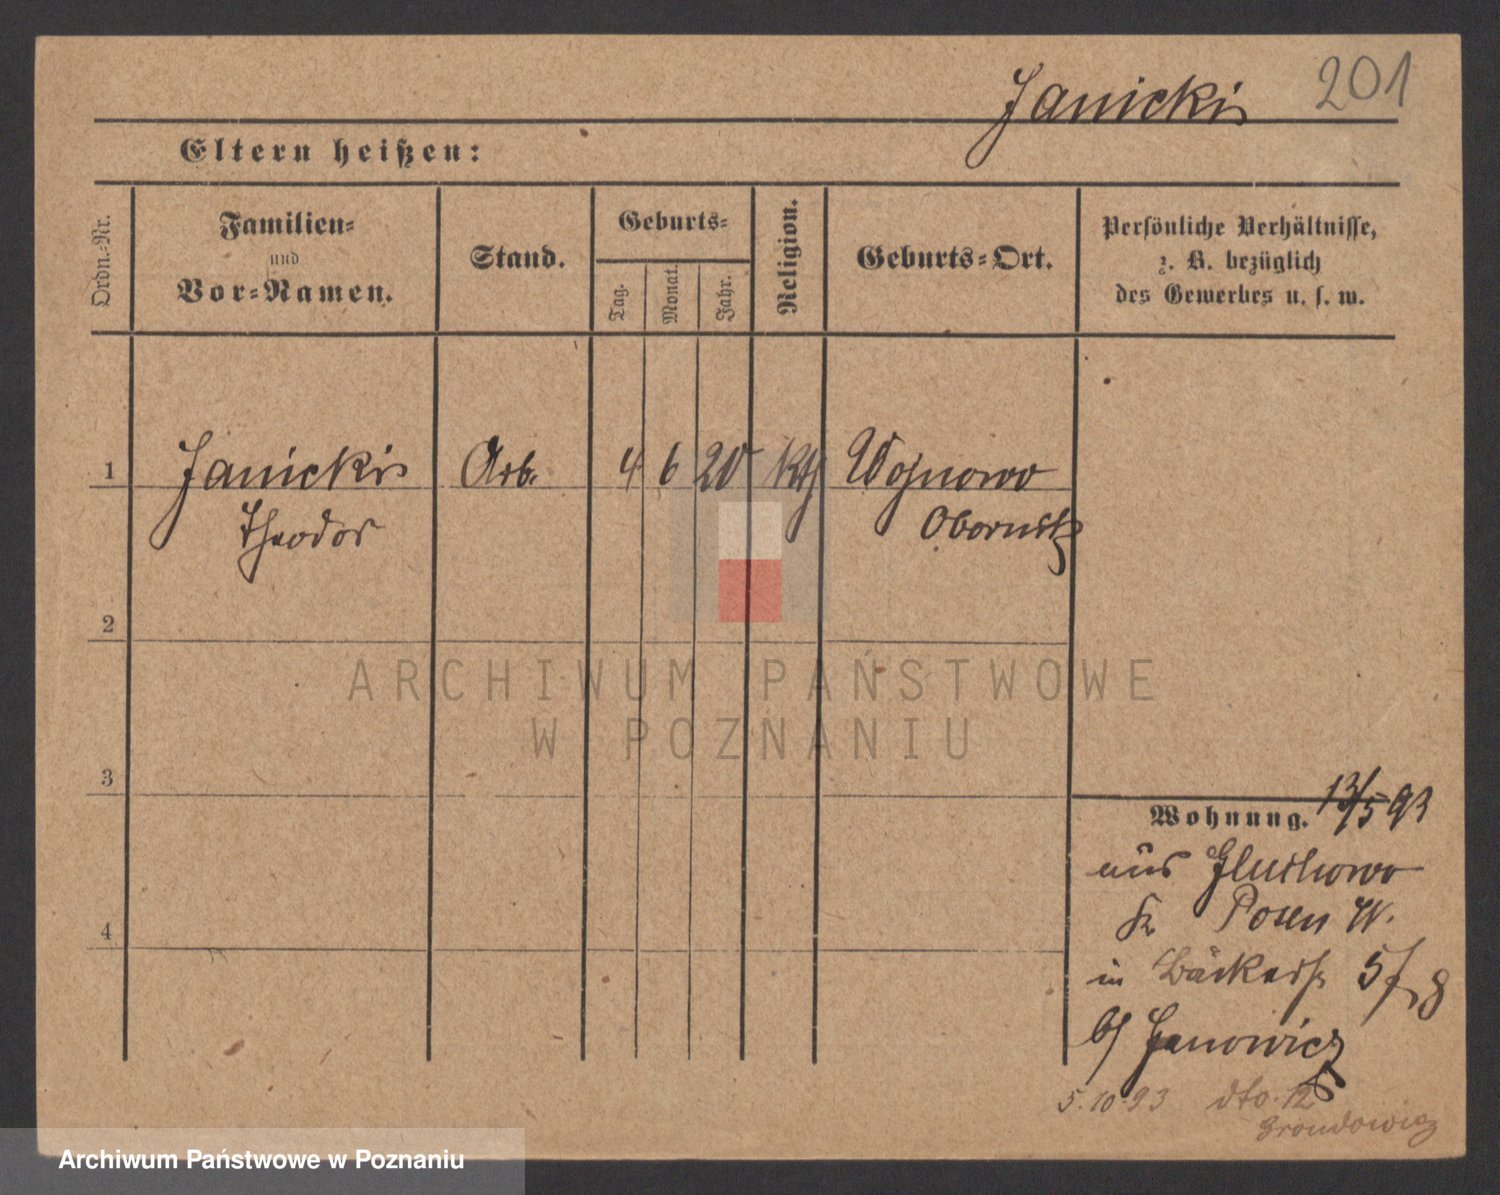 Janicki 201
Eltern heißen:
Ordn.-Nr.
Familien-
und
Vor-Namen.
Stand.
Geburts-
Tag.
Monat.
Jahr.
Religion.
Geburts-Ort.
Persönliche Verhältnisse,
z. B. bezüglich
des Gewerbes u. s. w.
1 Janicki Arb. 4 6 20 kth Wojnowo
Theodor Obornik
2
3
4
Wohnung. 13/5 93
aus Gluchowo
Kr Posen W.
in Bäckerstr 5
b/ Janowicz
5.10.93 dto. 12
Grondowicz
ARCHIWUM PAŃSTWOWE
W POZNANIU
Archiwum Państwowe w Poznaniu